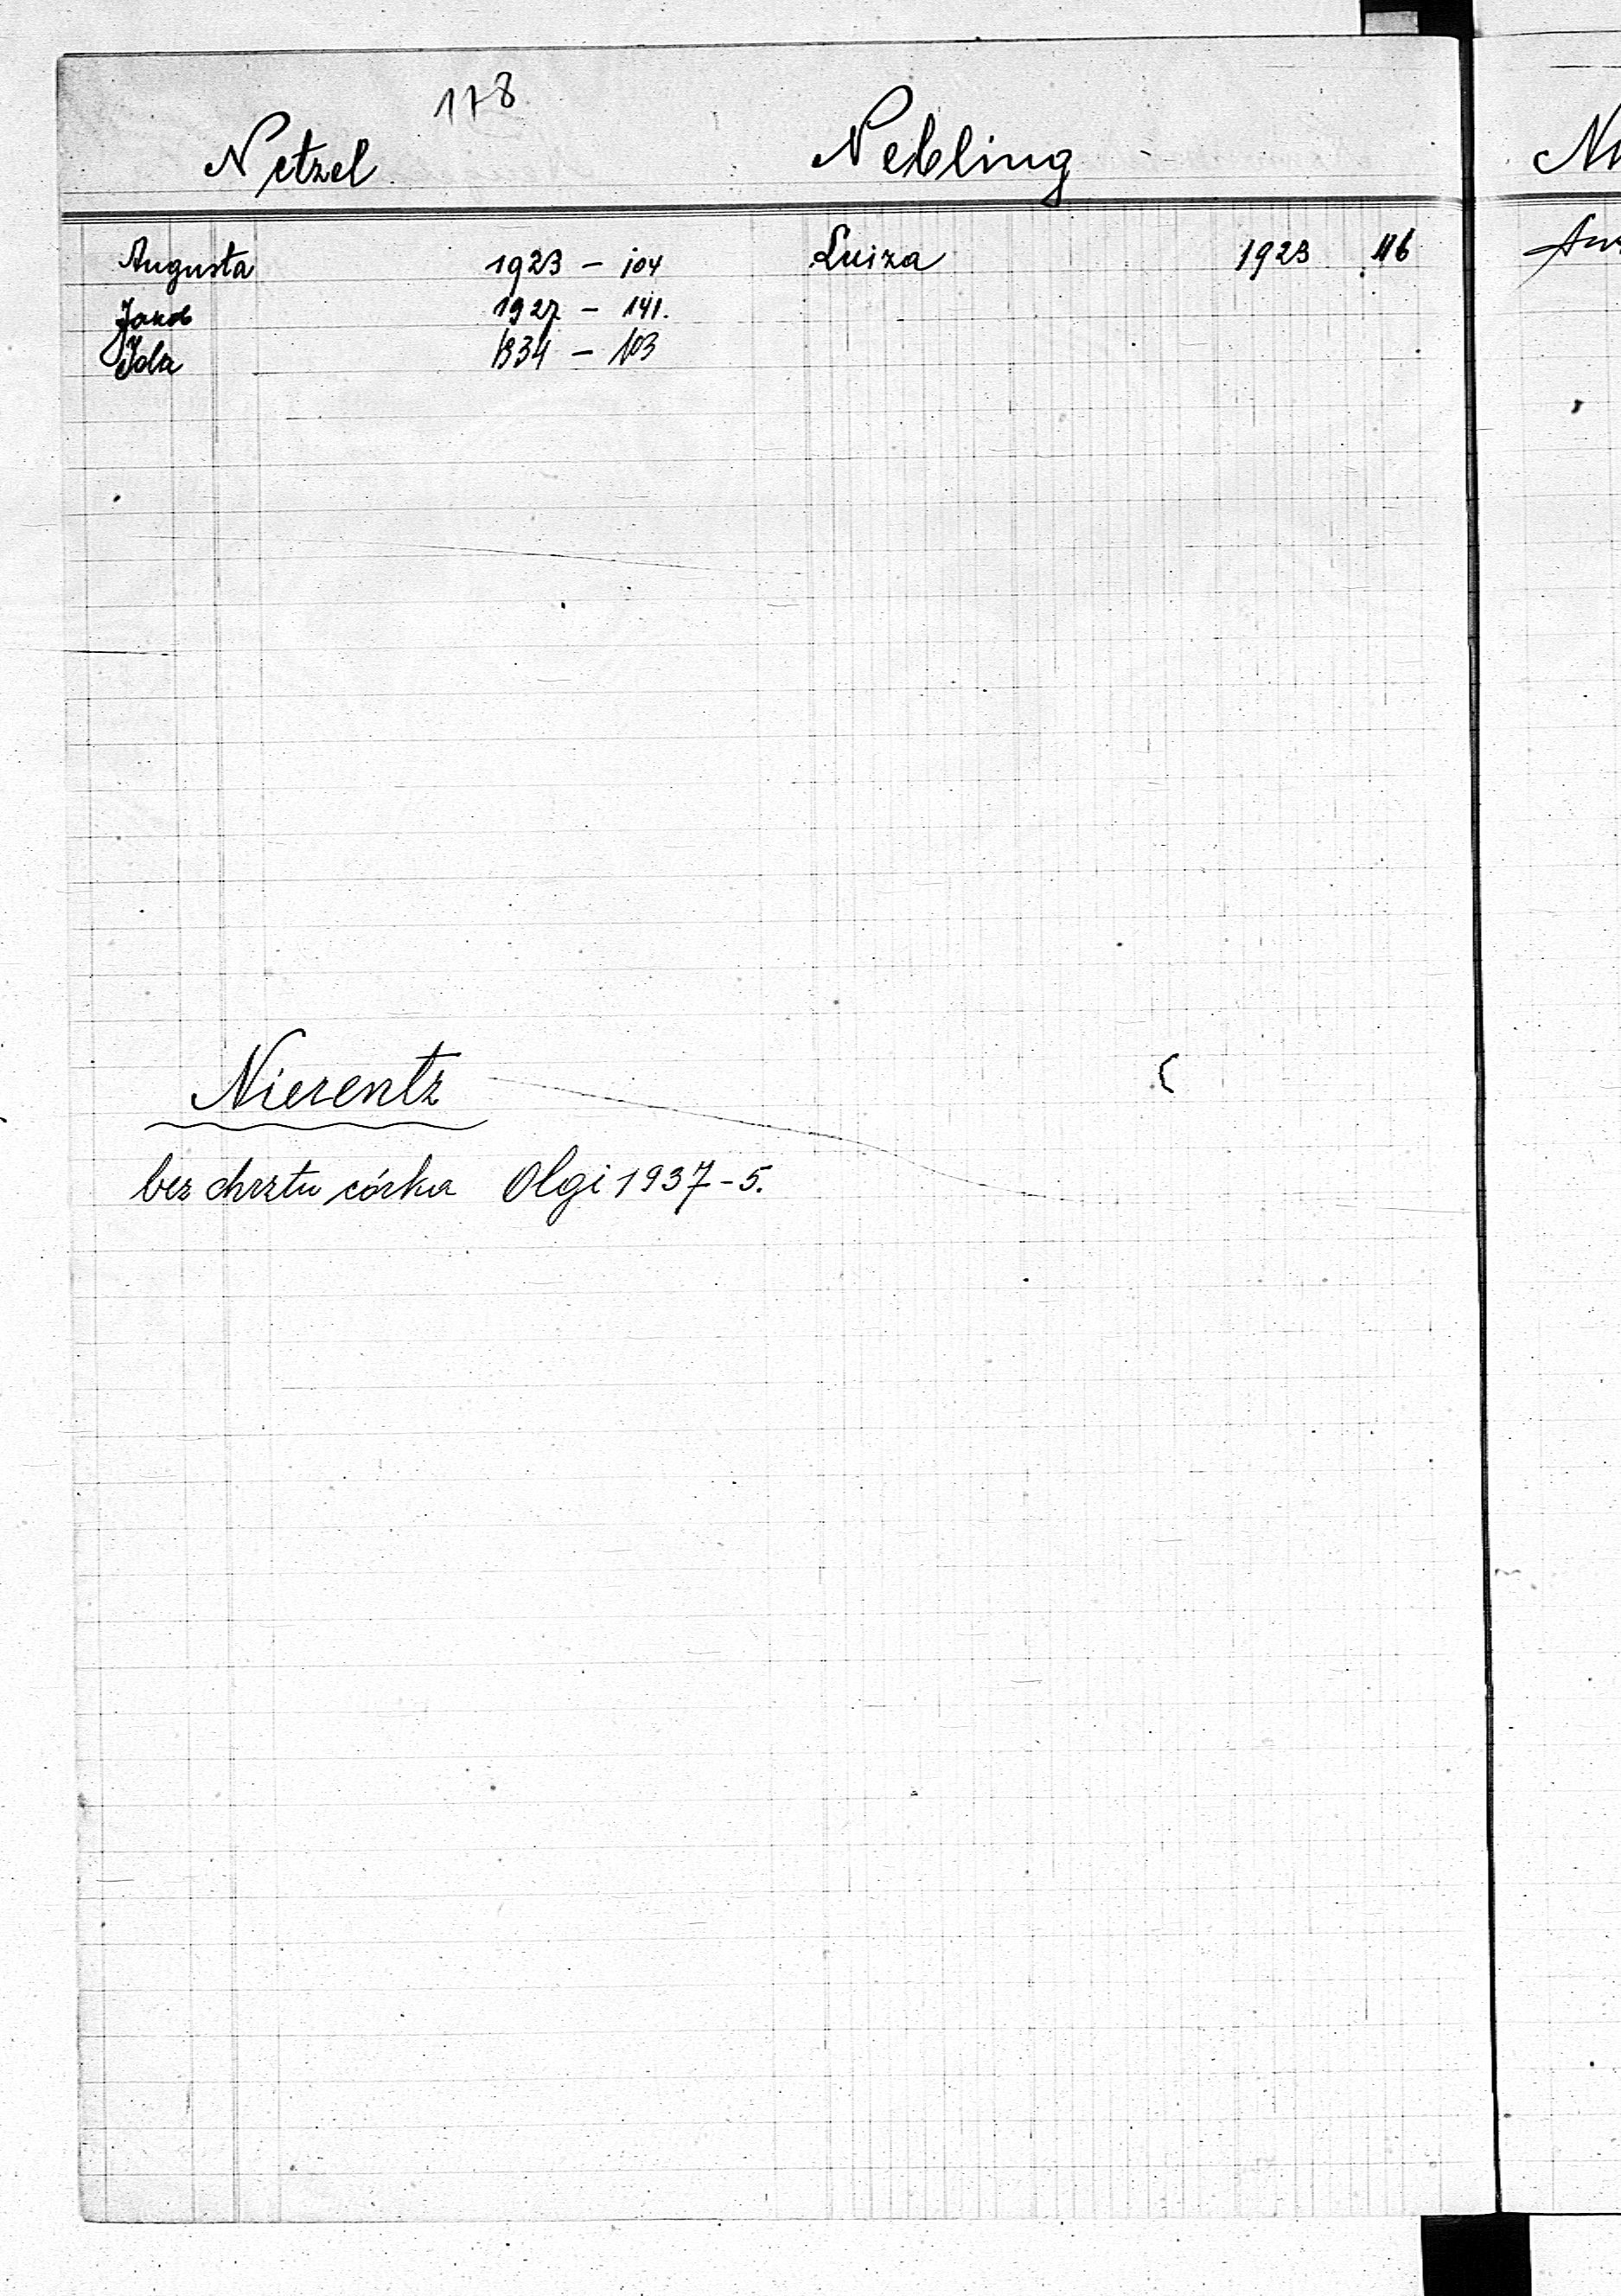 178
Netzel Nebling
Augusta 1923 - 104 Luiza 1923 116
Jakob 1927 - 141.
Ida 1934 - 103
Nierentz
bez chrztu córka Olgi 1937 - 5.